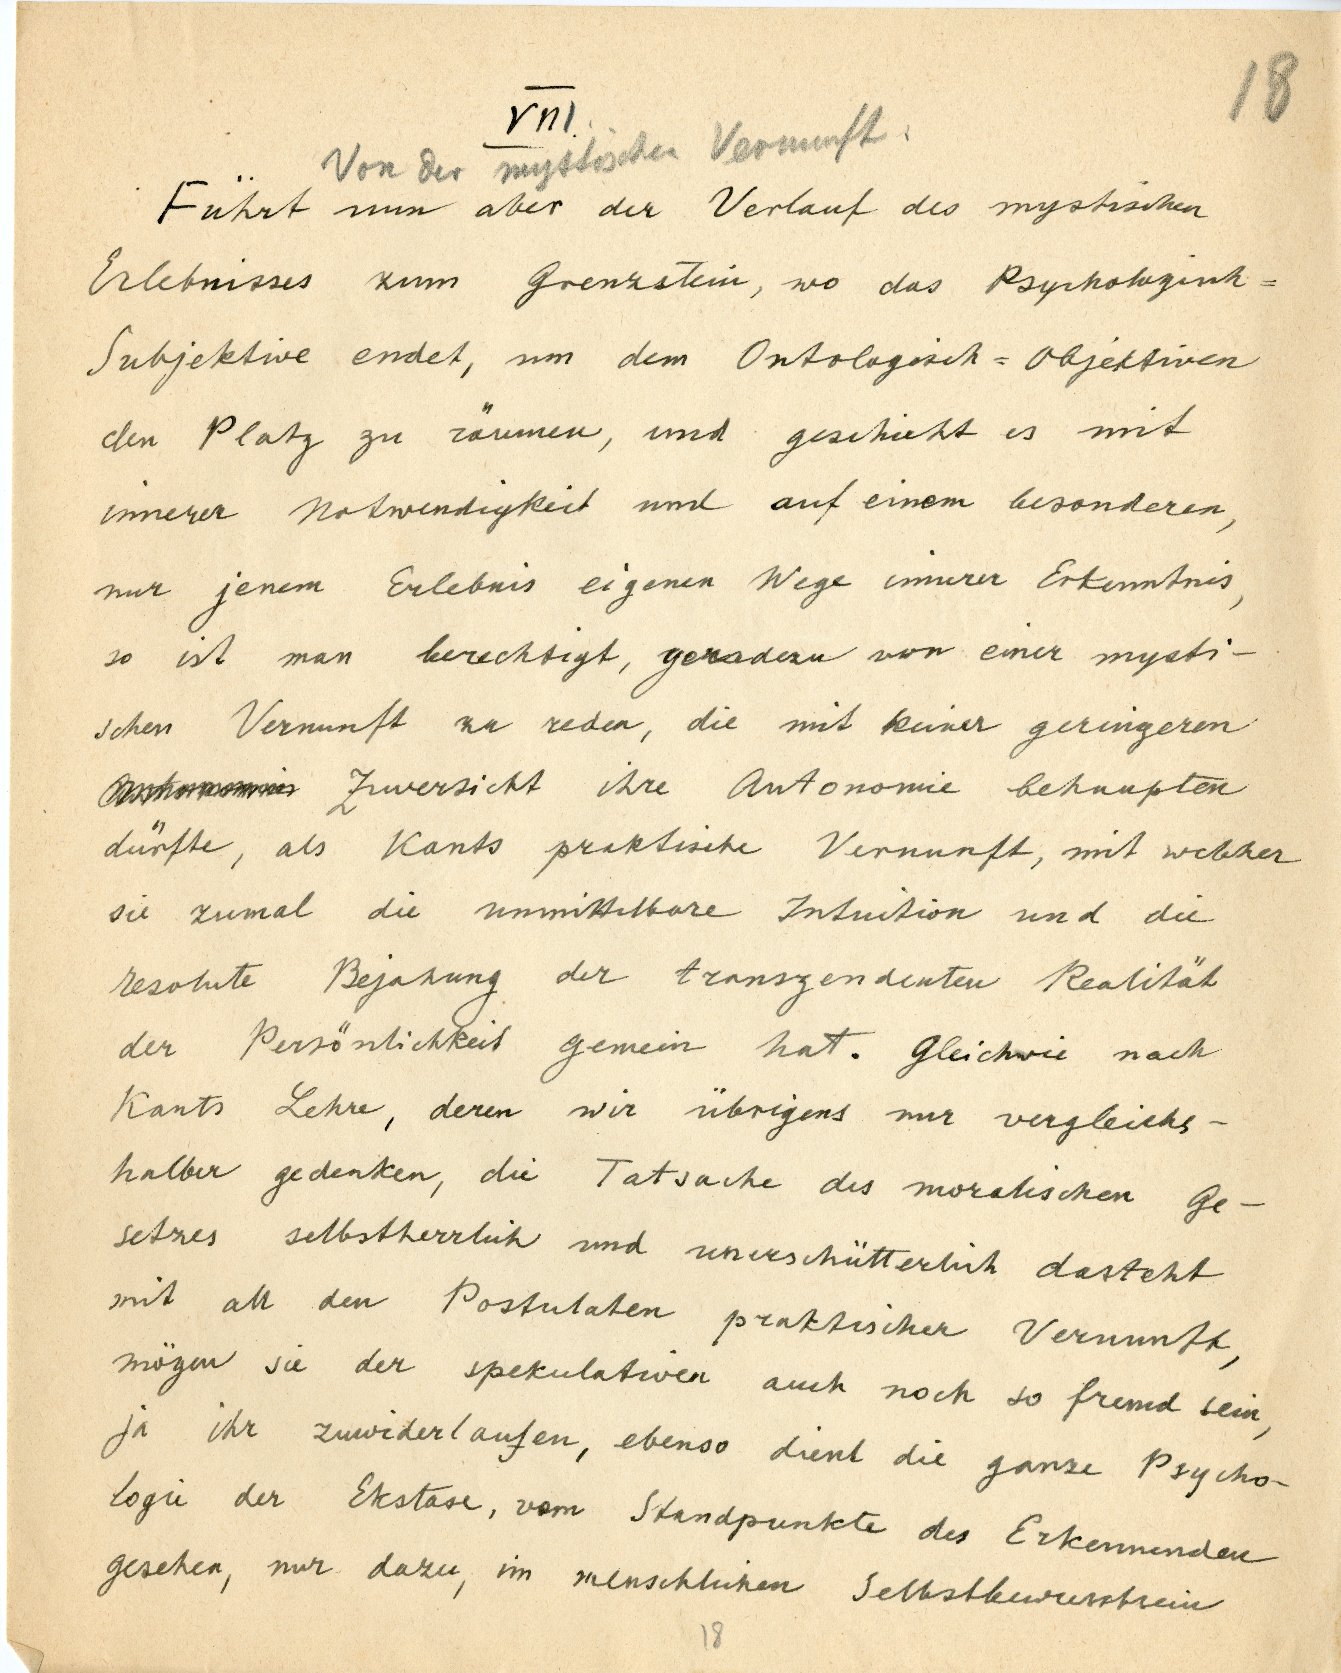 18
VIII.
Von der mystischen Vernunft.
Führt nun aber der Verlauf des mystischen
Erlebnisses zum Grenzstein, wo das Psychologisch=
Subjektive endet, um dem Ontologisch=Objektiven
den Platz zu räumen, und geschieht es mit
innerer Notwendigkeit und auf einem besonderen,
nur jenem Erlebnis eigenen Wege innerer Erkenntnis,
so ist man berechtigt, geradezu von einer mysti-
schen Vernunft zu reden, die mit keiner geringeren
Zuversicht ihre Autonomie behaupten
dürfte, als Kants praktische Vernunft, mit welcher
sie zumal die unmittelbare Intuition und die
resolute Bejahung der transzendenten Realität
der Persönlichkeit gemein hat. Gleichwie nach
Kants Lehre, deren wir übrigens nur vergleichs-
halber gedenken, die Tatsache des moralischen Ge-
setzes selbstherrlich und unerschütterlich dasteht
mit all den Postulaten praktischer Vernunft,
mögen sie der spekulativen auch noch so fremd sein,
ja ihr zuwiderlaufen, ebenso dient die ganze Psycho-
logie der Ekstase, vom Standpunkte des Erkennenden
gesehen, nur dazu, im menschlichen Selbstbewusstsein
18